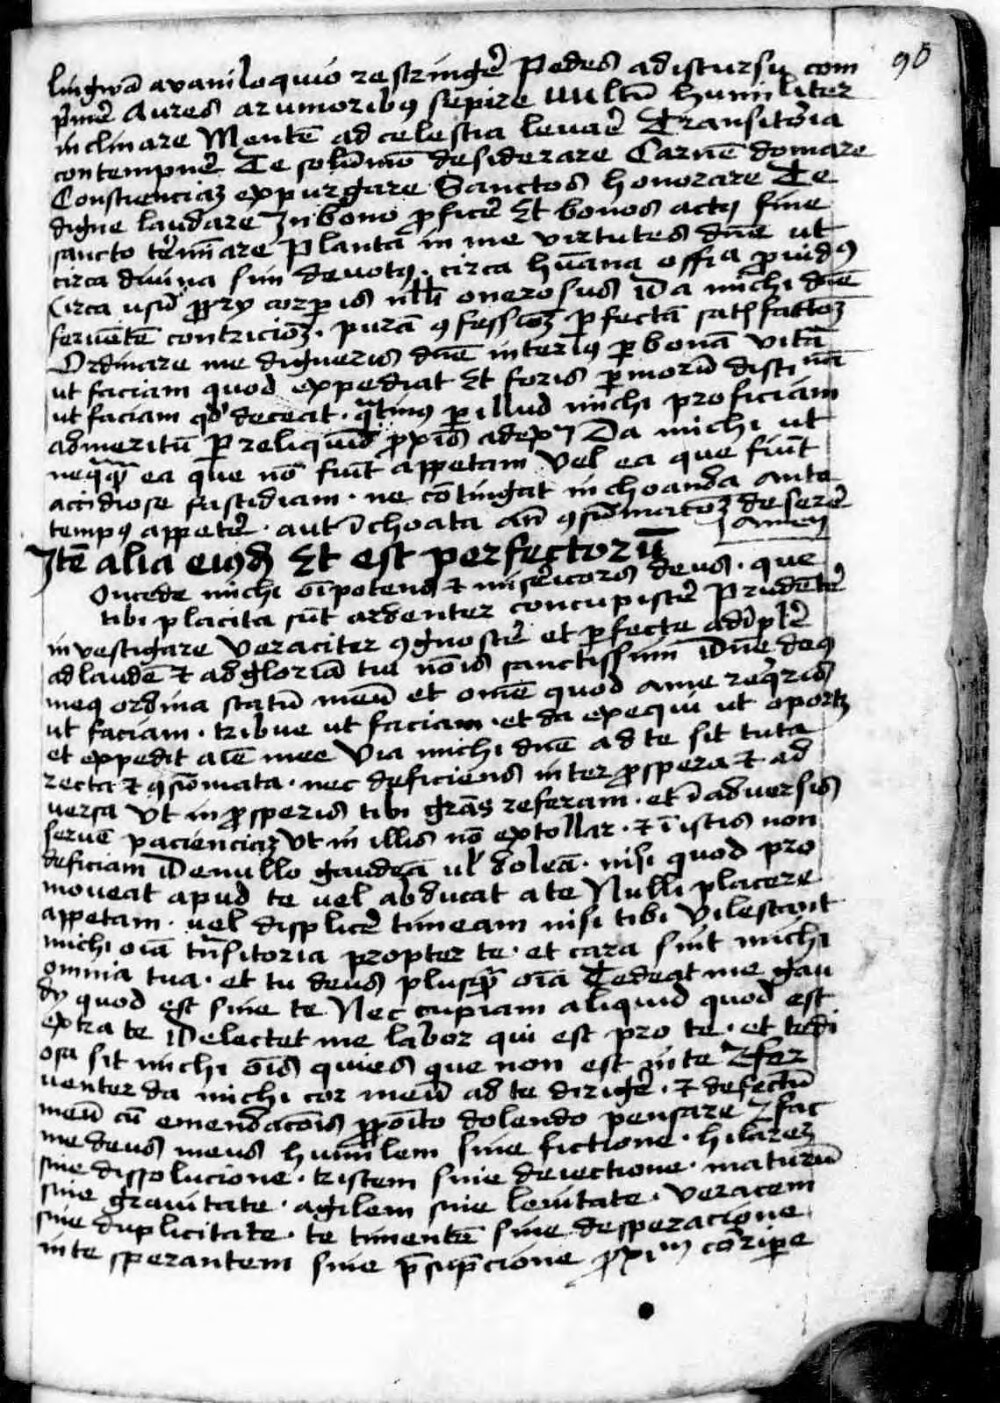 90
lingwā a vaniloquio restringe᷒ Pedes a discursu com
p̄me᷒ Aures a rumoribꝰ sepire Uultū humiliter
inclinare Mentē ad celestia levare᷒ Transitoria
contempne᷒ Te solūmō desiderare Carnē domare
Conscienciaꝫ expurgare Sanctos honorare Te
digne laudare In bono ꝓfice᷒ Et bonos actꝰ fine
sancto t᷒minare Planta in me virtutes dn̄e ut
circa divina sim devotꝰ · circa hūana offi᷒a ꝓvidꝰ
Circa usū ꝓp᷒ry corꝑis nll̄i onerosus Da michi dn̄e
ferventē contricioꝫ · purā ꝯfessioꝫ ꝑfectā satisfactōꝫ
Ordinare me digneris dn̄e interiꝰ ꝑ bonā vitā
ut faciam quod expediat Et foris ꝑ morū disti nā
ut faciam qd̄ deceat · q̄tinꝰ ꝑ illud michi proficiam
ad meritū Per reliquū ꝓxīs ad exꝫ Da michi ut
neqꝗ̄ꝗ̄ ea que nō fiūt appetam Vel ea que fiūt
accidiose fastidiam · ne cōtingat inchoanda ante
tempꝰ appete᷒ · aut īchoata an̄ ꝯsūmatōꝫ desere᷒
Amen
Itē alia eiusd̄ Et est perfectorū
Oncede michi oīpotens ⁊ misericors deus · que
tibi placita sūt ardenter concupisce᷒ Prudēte᷒
investigare Veraciter ꝯgnosce᷒ et ꝑfecte adīple᷒
ad laudē ⁊ ad gloriā tui nōis sanctissimi Dn̄e deꝰ
meꝰ ordina statū meū et om̄e quod a me reꝗris
ut faciam · tribue ut faciam · et da exequi ut oportꝫ
et expedit aīe mee Via michi dn̄e ad te sit tuta
recta ⁊ ꝯsūmata · nec deficiens inter ꝓspera ⁊ ad
versa Ut in ꝓsperis tibi grās referam · et ī adversis
servē pacienciaꝫ Ut in illis nō extollar · ⁊ ī istis non
deficiam De nullo gaudeā ul̄ doleā · nisi quod pro
moveat apud te vel abducat a te Nulli placere
appetam · vel displice᷒ timeam nisi tibi Vilescant
michi oīa tn̄sitoria propter te · et cara sint michi
omnia tua · et tu deus plusꝗ̄ oīa Tedeat me gau
dy quod est sine te Nec cupiam aliquid quod est
extra te Delectet me labor qui est pro te · et tedi
osa sit michi oīs quies que non est in te ⁊ fer
venter da michi cor meū ad te dirige᷒ · ⁊ defectū
meū cū emendacōis ꝓpōito dolendo pensare ⁊ fac
me deus meus humilem sine fictione · hilareꝫ
sine dissolucione · tristem sine deiectione · maturū
sine gravitate · agilem sine levitate · veracem
sine duplicitate · te timentē sine desperacione
in te sperantem sine p̄sūpcione ꝓximū corripe